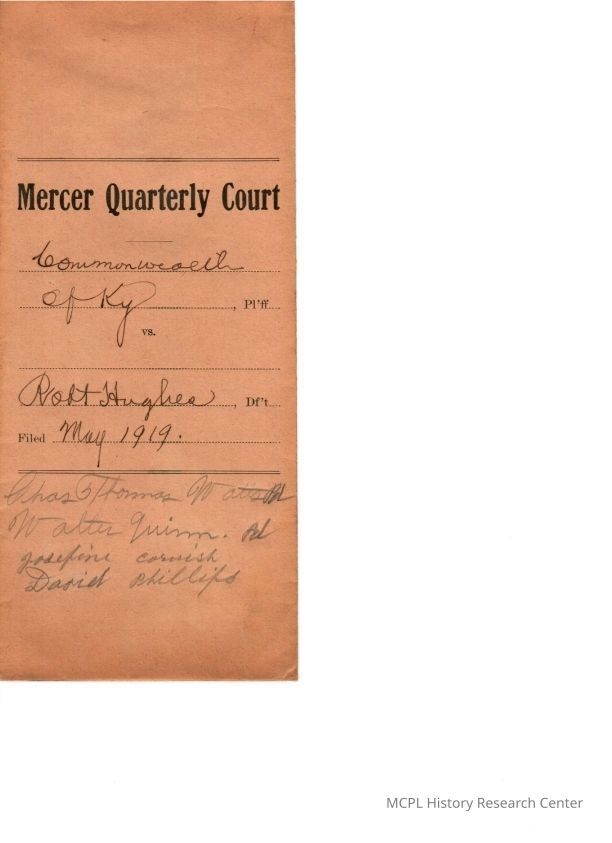 Mercer Quarterly Court
Commonwealth
of Ky, Pl'ff.
vs.
Robt Hughes, Df't.
Filed May 1919.
Chas Thomas Watts Pd
Walter Quinn. Pd
josefine cornish
David Phillips
MCPL History Research Center